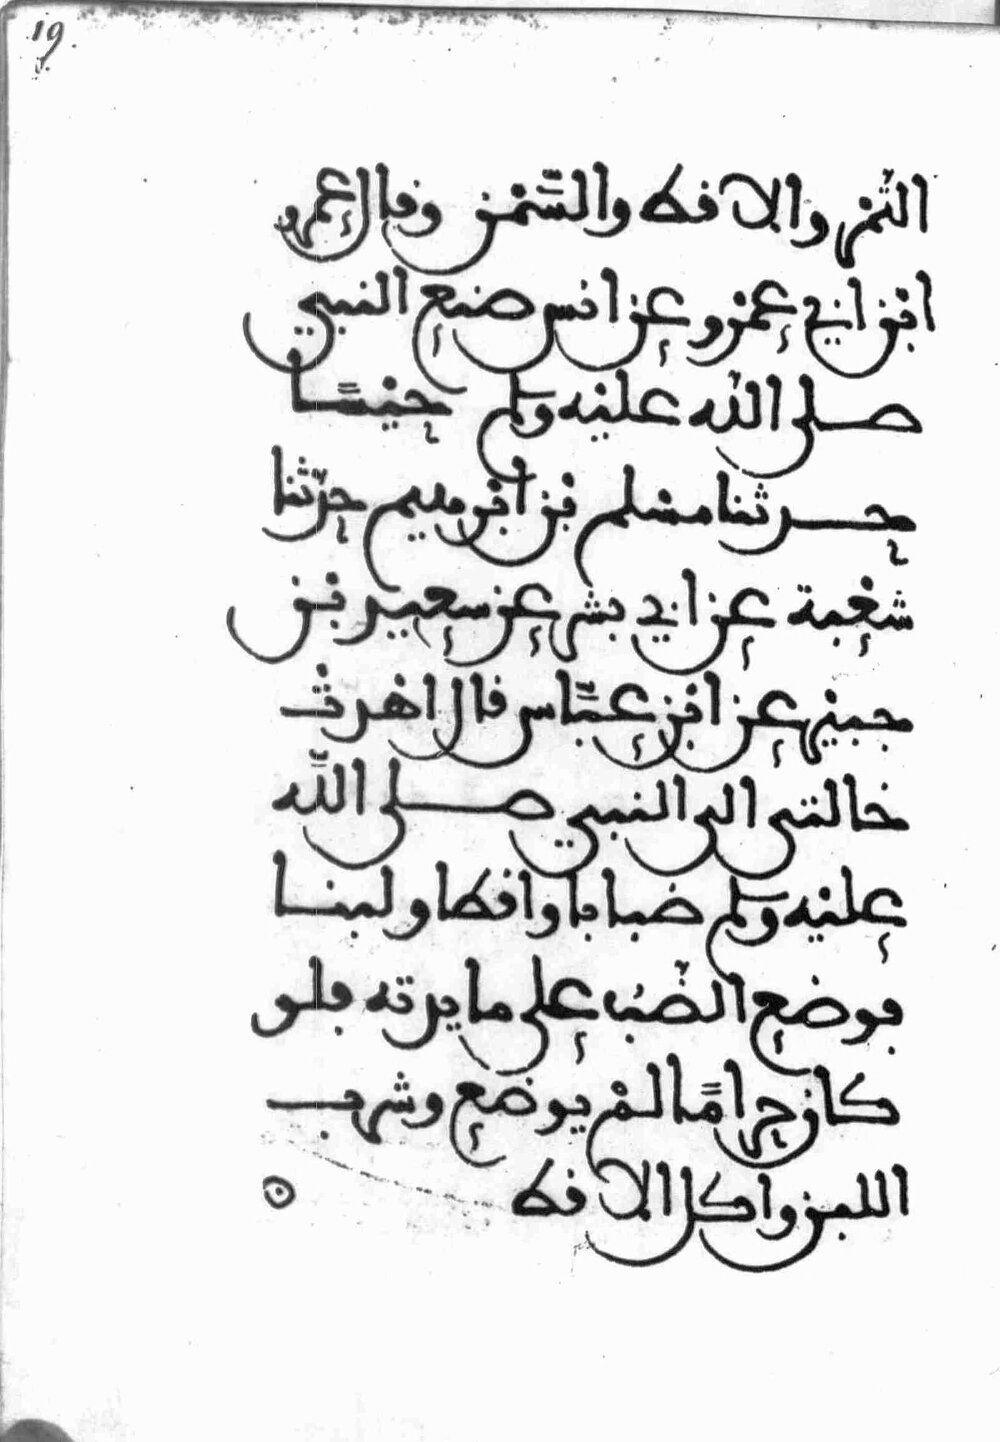 19
التمر والاقط والسّمن وقال عمرو
ابن ابي عمرو عن انس صنع النبي
صلى الله عليه وسلم حيسًا
حدثنا مسلم بن ابرهيم حدّثنا
شعبة عن ابي بشر عن سعيد بن
جبير عن ابن عبّاس قال اهدت
خالتي الى النبي صلى اللّه
عليه وسلم ضبابا واقطا ولبنا
فوضع الضّب على مايدته فلو
كان حرامًا لم يوضع وشرب
اللبن واكل الاقط